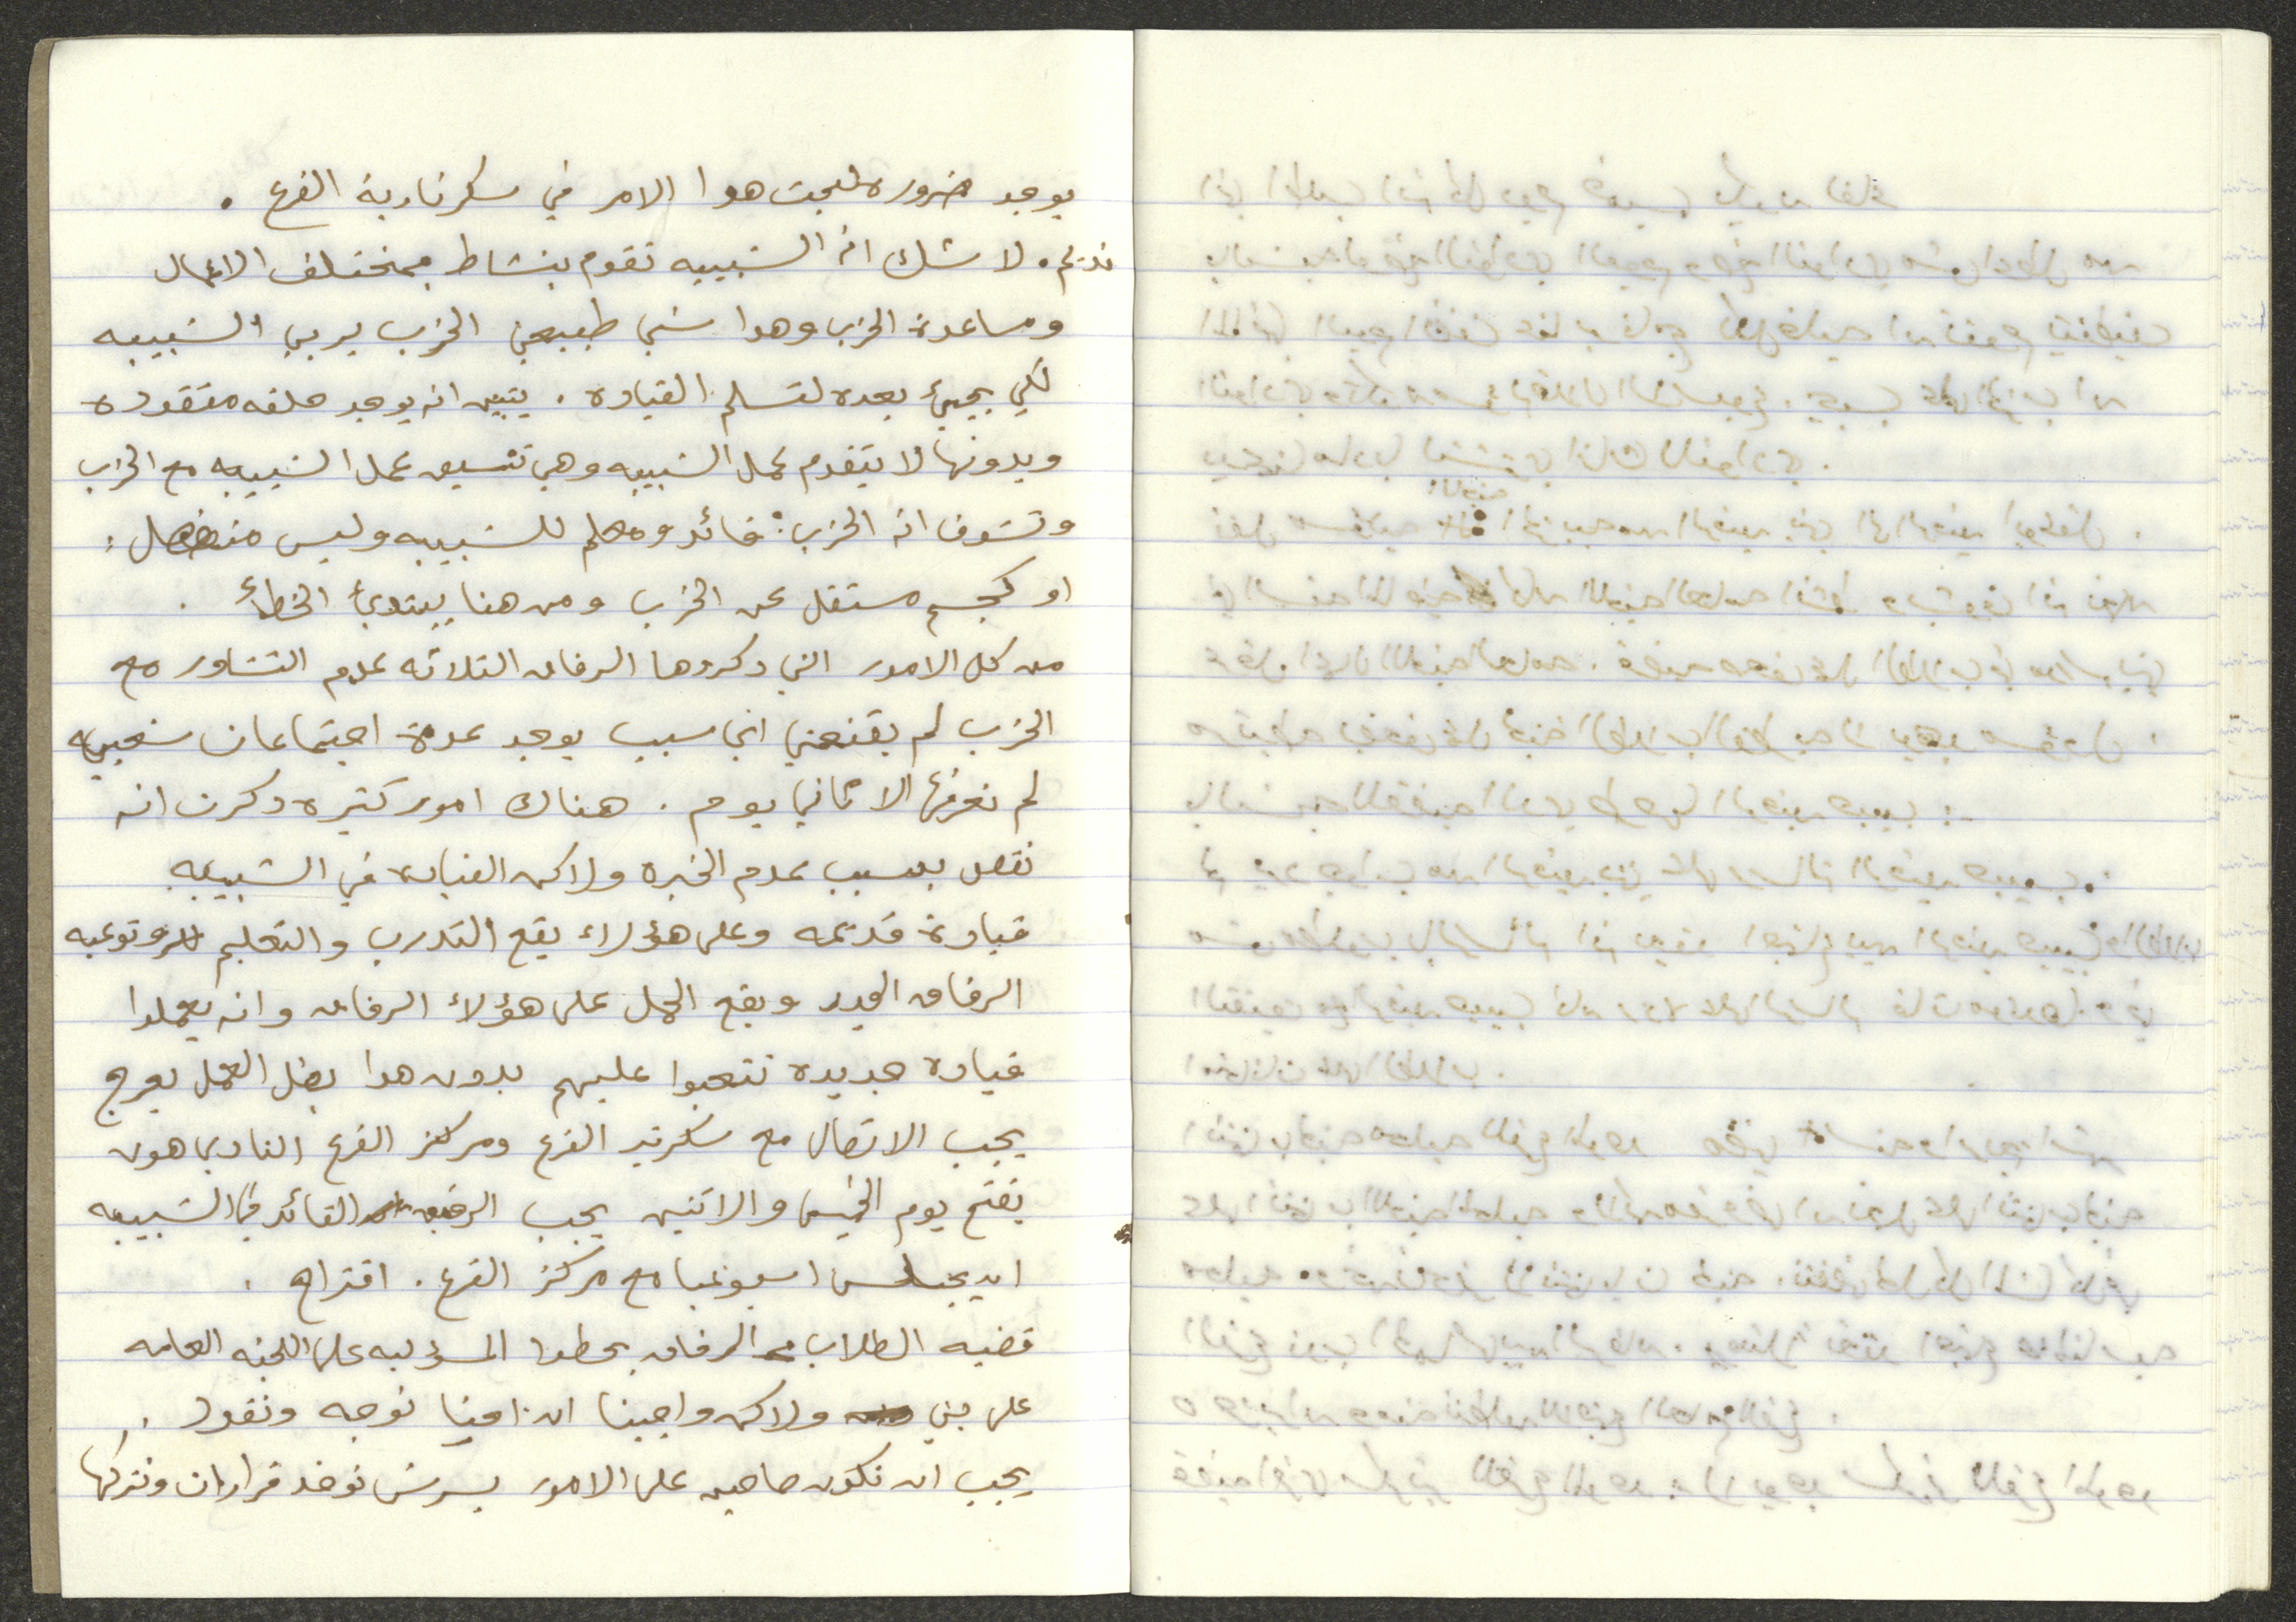 يوجد ضروره لبحث هدا الامر في سكرتارية الفرع .
نديم . لا شك ان الشبيبه تقوم بنشاط بمختلف الاعمال
ومساعدة الحزب وهدا شي طبيعي الحزب يربي الشبيبه
لكي يجيئ بعده لتسلم القيادة . يتبين انه يوجد حلقه مفقوده
وبدونها لا يتقدم عمل الشبيبه وهي تنسيق عمل الشبيبه مع الحزب
وتشوف ان الحزب : قائد ومعلم للشبيبه وليس منفصل :
او كجسم مستقل عن الحزب ومن هنا يبتدئ الخطأ .
من كل الامور التي دكروها الرفاق التلاته عدم التشاور مع
الحزب لم يقنعني اي سبب يوجد عدة اجتماعات شعبيه
لم نعرفها الا ثاني يوم . هناك امور كتيره دكرت انه
نقص بسبب عدم الخبره ولاكن القياده في الشبيبه
قيادة قديمه وعلى هؤلاء يقع التدرب والتعليم وتوعيه
الرفاق الجدد ويقع الحمل على هؤلاء الرفاق وان يعملوا
قيادة جديده تتعبوا عليهم بدون هدا يضل العمل يعرج
يجب الاتصال مع سكرتير الفرع ومركز الفرع النادي هون
يفتح يوم الخميس والاتنين يجب الرفيق القائد في الشبيبه
ان يجلس اسبوعيا مع مركز الفرع . اقتراح .
قضيه الطلاب الرفاق بحطوا المسؤليه على اللجنه العامه
على بني ولاكن واجبنا ان نوجه ونقود .
يجب ان نكون صاحين على الامور بسرش نوخد قرارات ونتركها